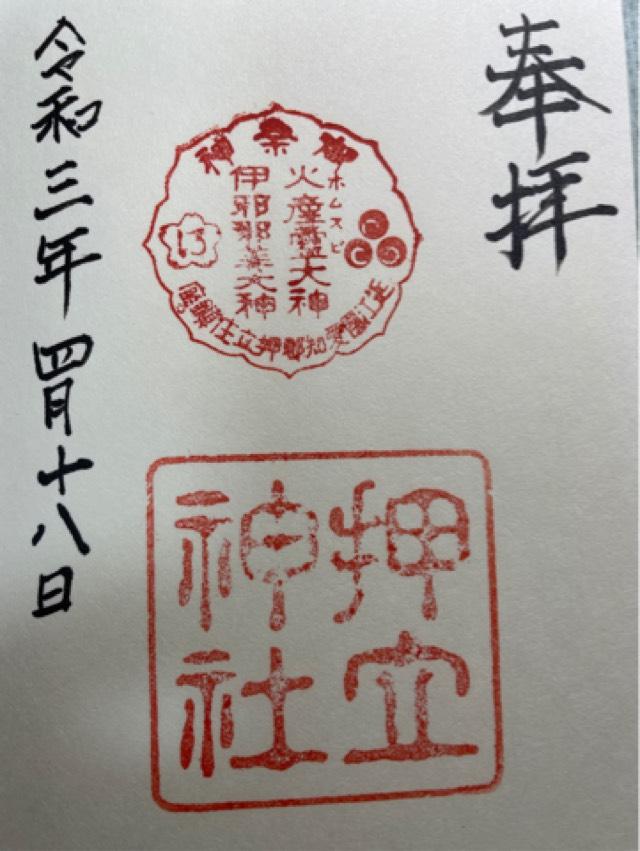 奉拝
御祭神
ホムスビ
火産霊大神
伊邪那美大神
近江國愛知郡押立
押立
神社
令和三年四月十八日